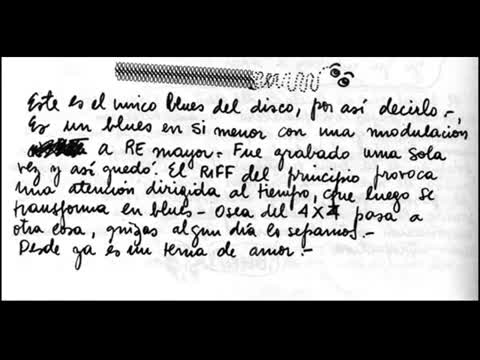 Este es el unico blues del disco, por así decirlo.-,
Es un blues en si menor con una modulación
a RE mayor. Fue grabado una sola
vez y así quedó. El RIFF del principio provoca
una atención dirigida al tiempo, que luego se
transforma en blues - Osea del 4x4 pasa a
otra cosa, quizas algun día lo sepamos.-
Desde ya es un tema de amor.-